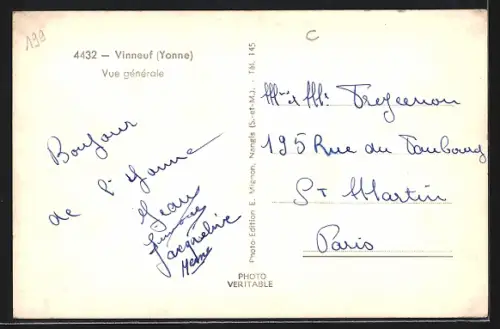 199
C
4432 — Vinneuf (Yonne)
Vue générale
Bonjour
de l'Yonne
Jean
Simone
Jacqueline
Photo-Edition E. Mignon, Nangis (S.-et-M.) - Tél. 145
Mme et Mr
195 Rue du Faubourg
St Martin
Paris
PHOTO
VERITABLE